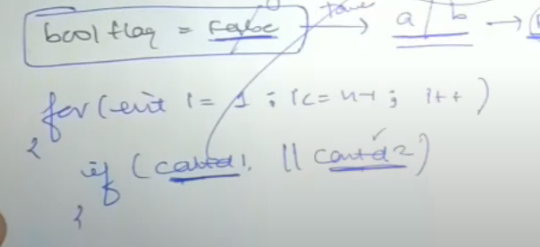 bool flag = false → a | b →
for(int i = 1 ; i<= n-1 ; i++)
{
if (cond1 || cond2)
}